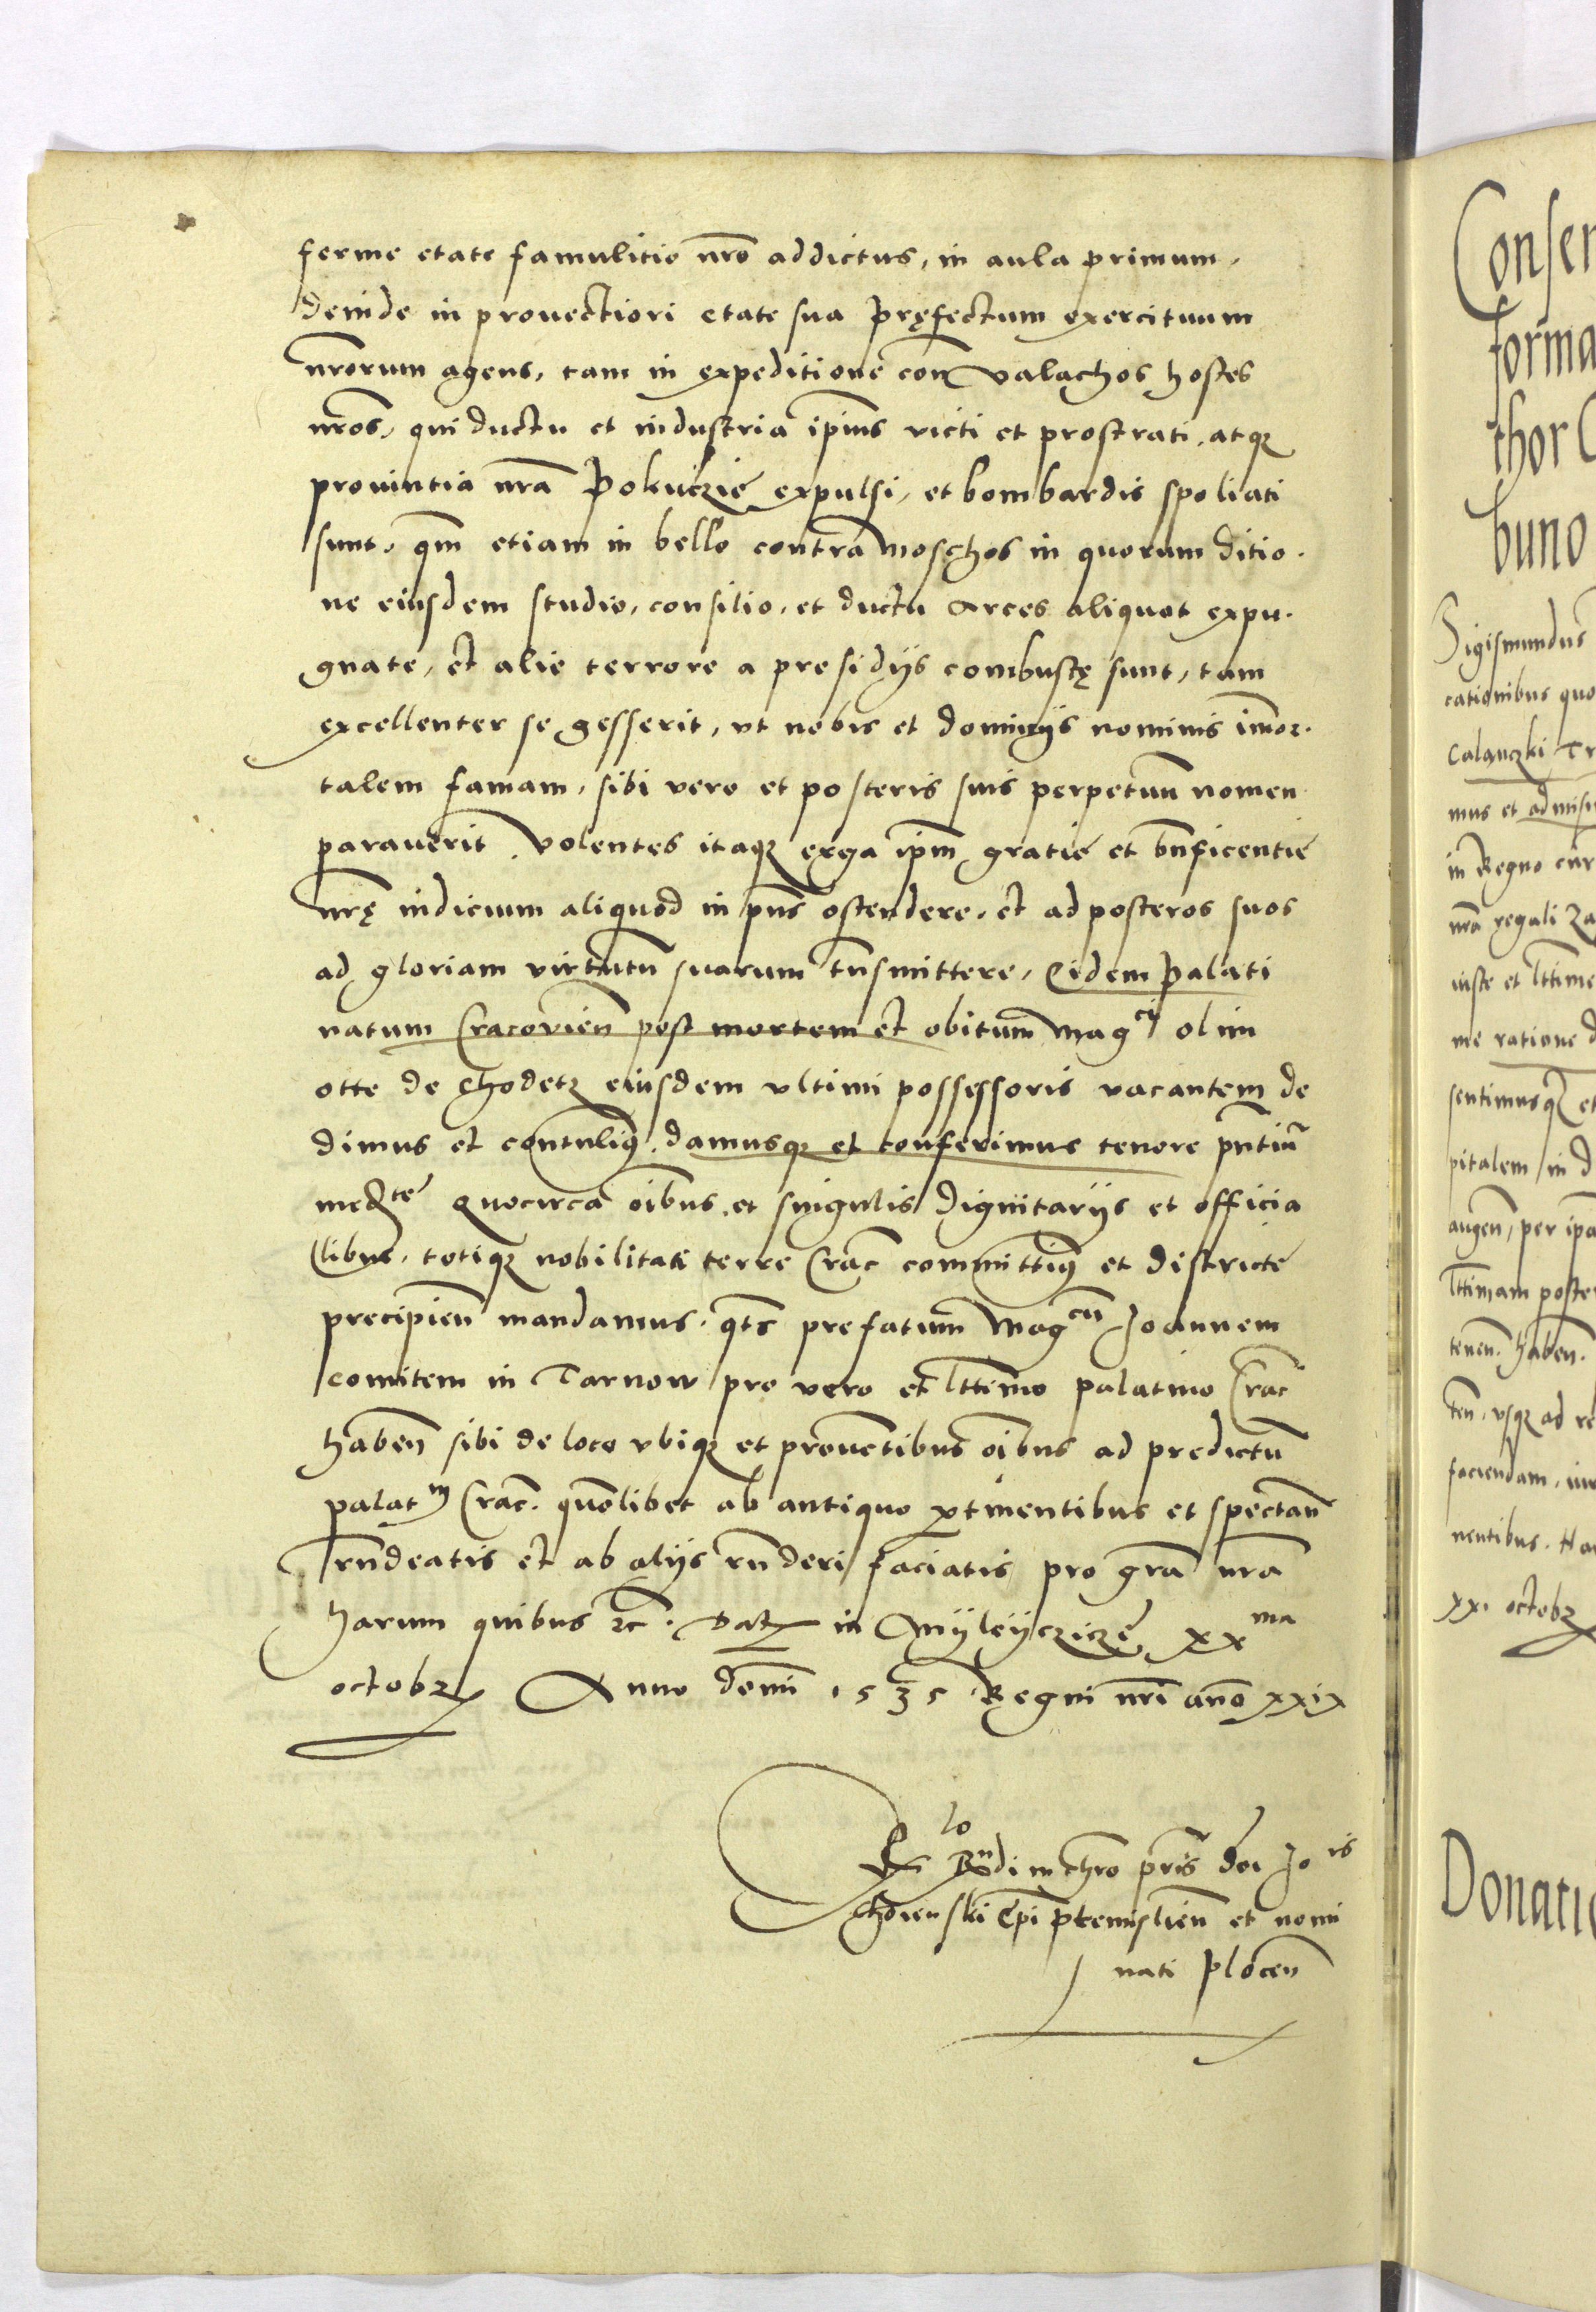 ferme etate famulitio nr̃o addictus, in aula primum,
deinde in prouectiori etate sua pręfectum exercituum
nr̃orum agens, tam in expeditione con̄ valachos hostes
nr̃os, qui ductu et industria ip̄ius victi et prostrati, atqꝫ
prouintia nr̃a Pokuczie expulsi, et bombardis spoliati
sunt, qm̄ etiam in bello contra moschos in quorum ditio-
ne eiusdem studio, consilio, et ductu Arces aliquot expu-
gnate, et alie terrore a presidijs combustę sunt, tam
excellenter se gesserit, vt nobis et dominijs nominis im̄or-
talem famam, sibi vero et posteris suis perpetuū nomen
parauerit. Volentes itaqꝫ erga ip̄m gratie et bn̄ficentie
nr̃ę indicium aliquod in pn̄s ostendere, et ad posteros suos
ad gloriam virtutū suarum tn̄smittere, Eidem palati
natum Cracovien̄ post mortem et obitum Mag^ci olim
otte de Chodetz eiusdem vltimi possessoris vacantem de
dimus et contulimꝰ, damusqꝫ et conferimus tenore pn̄tiū
med^te Quocirca oībus et singulis dignitarijs et officia
libus, totiqꝫ nobilitati terre Crac̄ committimꝰ et districte
precipien̄ mandamus, qts prefatum Mag^cū Joannem
comitem in Tarnow pro vero et lt̄timo palatino Crac̄
haben̄ sibi de loco vbiqꝫ et prouētibus oībus ad predictū
palat^m Crac̄. quōlibet ab antiquo ꝑtinentibus et spectan̄
rn̄deatis et ab alijs rn̄deri faciatis pro gr̄a nr̃a
harum quibus ⁊c̄. Dat̄ in Myleyczicze xx^ma
octobr̄ Anno domī 1535 Regni nr̃i anō xxix
Ex R^lone Rn̄di in chr̄o pr̄is dn̄i Jo^is
Choienski Ep̄i premislien̄ et nomi
nati plocen̄
Conser
forma
thor C
buno
Sigismundus
cationibus quo
Calanczki Tr
mus et admisi
in Regno
nr̃a regali Za
iuste et lt̄time
me ratione d
sentimusqꝫ et
pitalem in d
augen̄, per ipā
lt̄timam poste
tenen̄. haben̄.
ten̄. vsqꝫ ad re
faciendam, iur
nentibus. Har
xx. octobr̄
Donatio